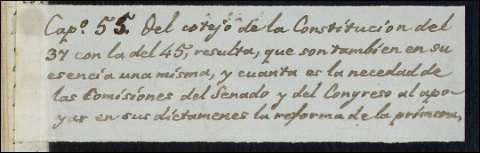 Capº. 55. Del cotejo de la Constitucion del
37 con la del 45, resulta, que son tambien en su
esencia una misma, y cuanta es la necedad de
las Comisiones del Senado y del Congreso al apo-
yar en sus dictamenes la reforma de la primera,